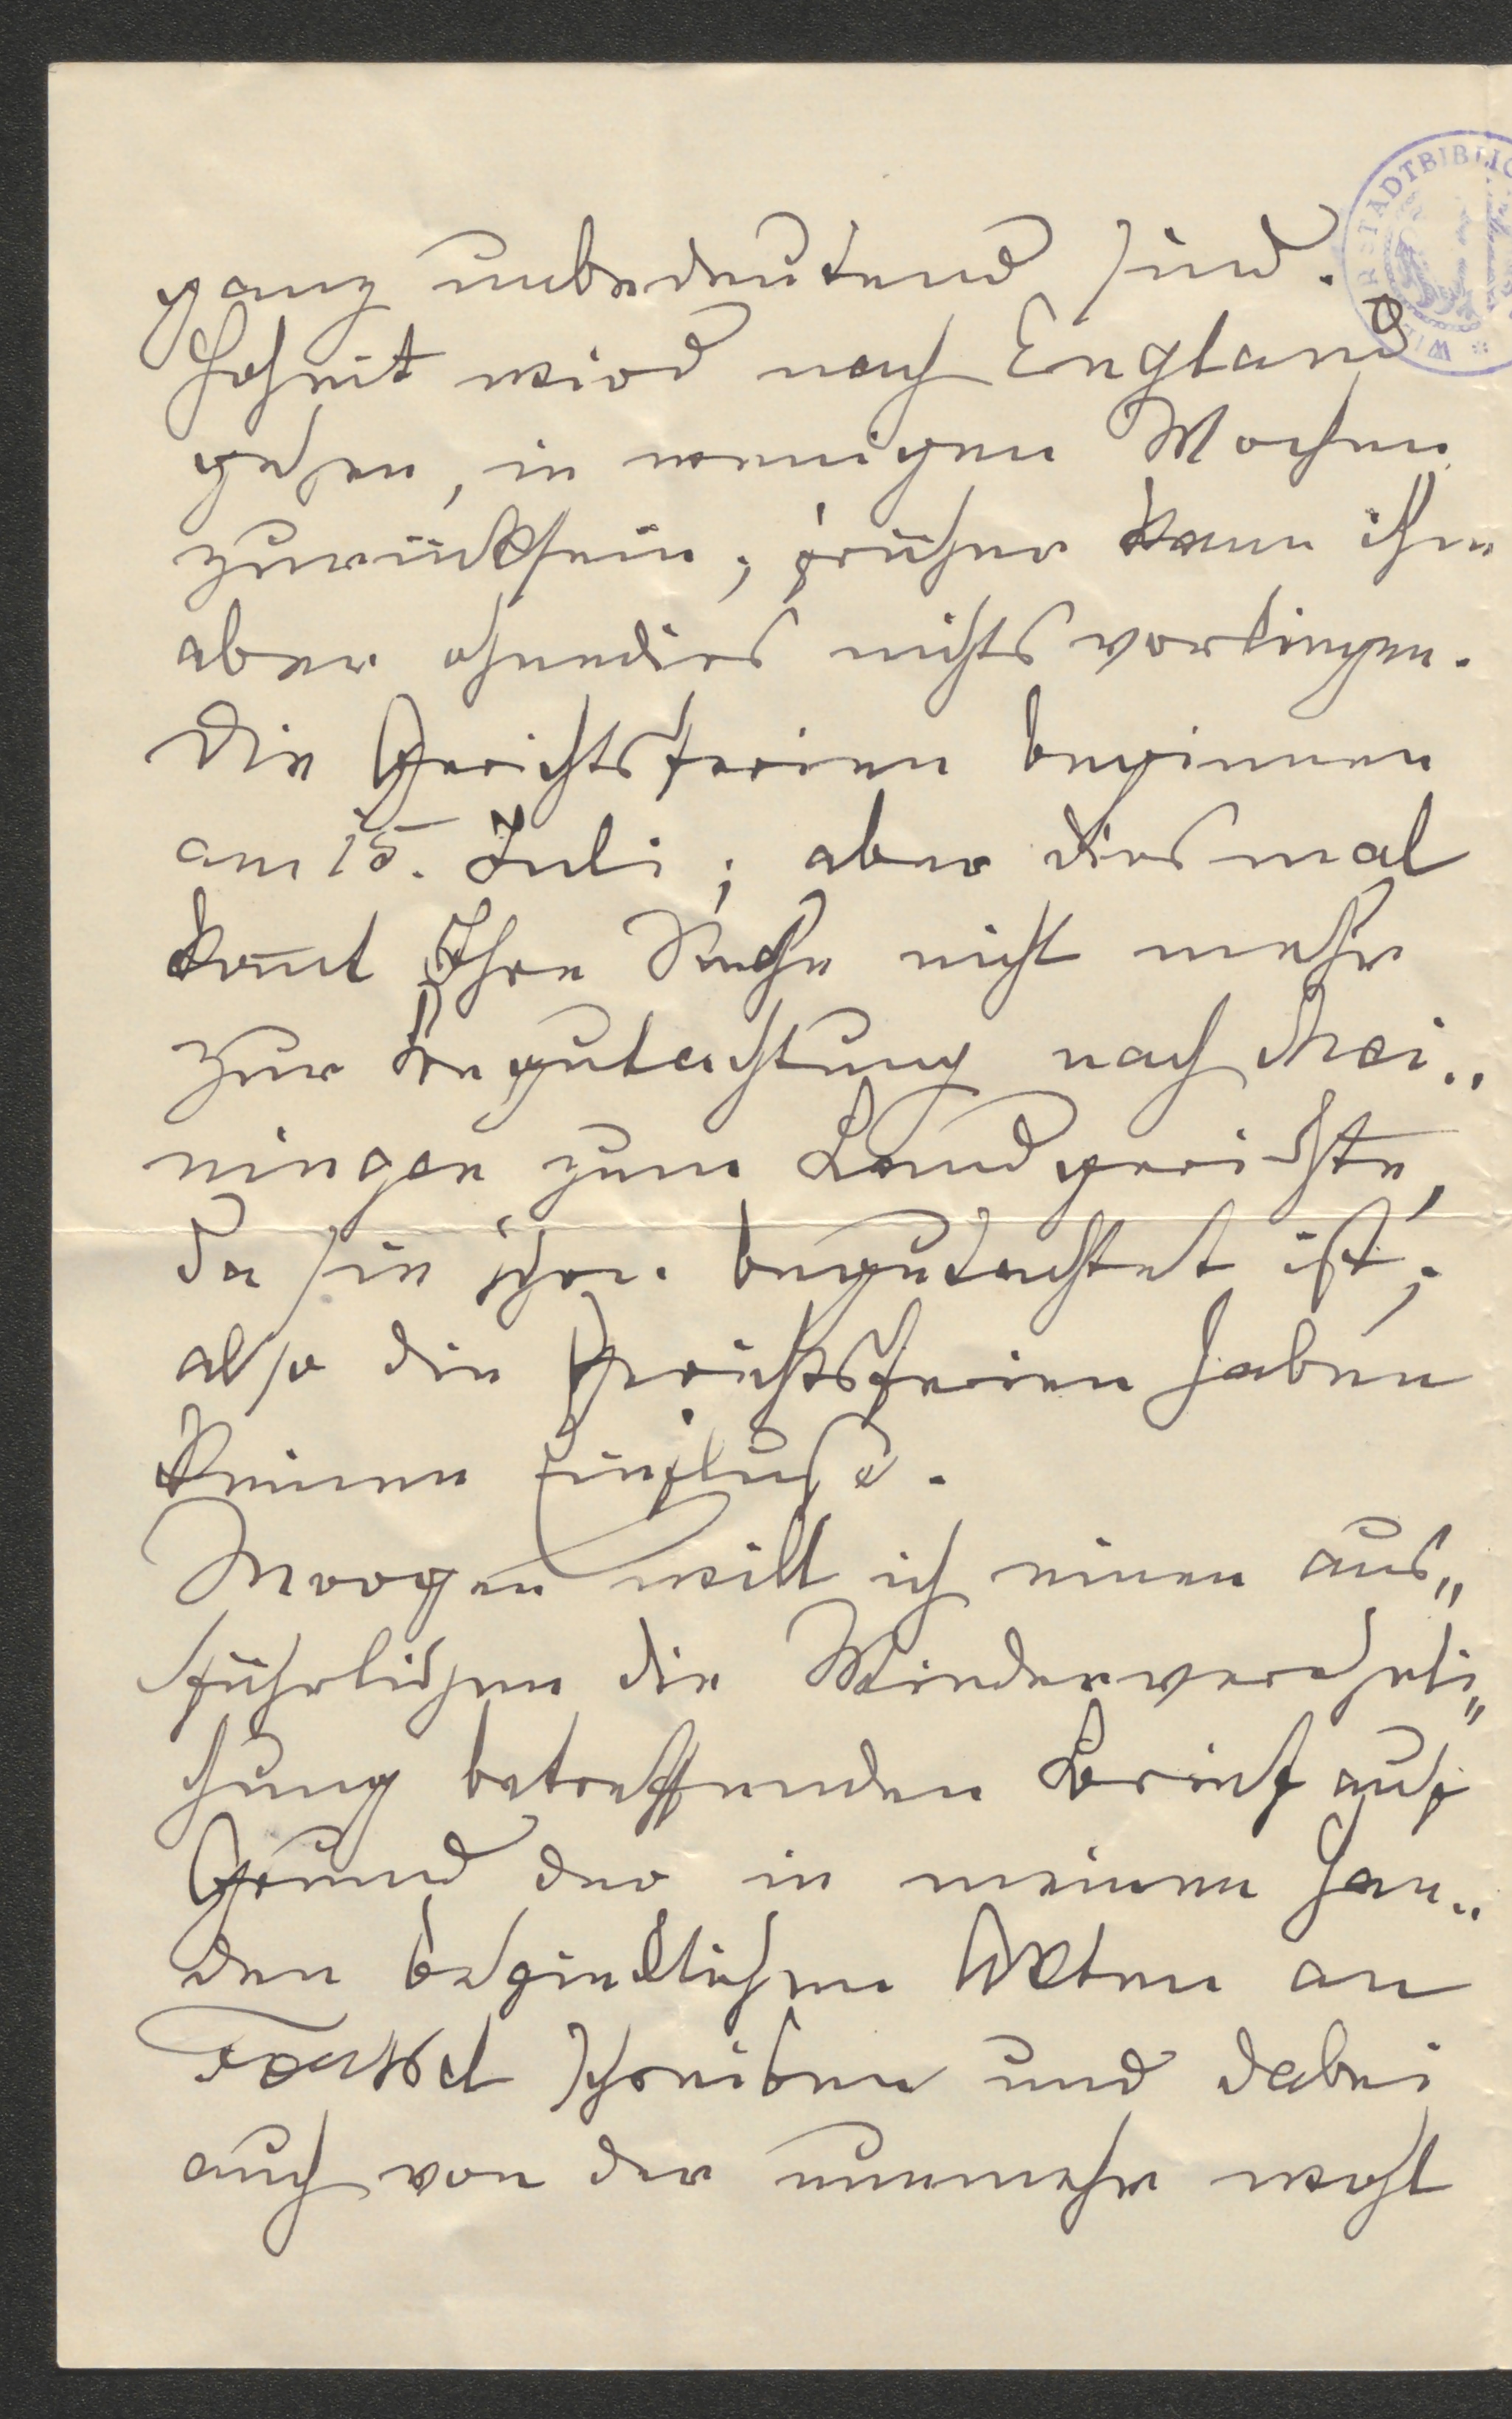 ganz unbedeutend sind.
Hoheit wird nach England
gehen, in wenigen Wochen
zurücksein; früher kann ihm
aber ohnedies nichts vorliegen.
Die Gerichtsferien beginnen
am 15. Juli; aber diesmal
kom̅t Ihre Sache nicht mehr
zur Begutachtung nach Mei„
ningen zum Landgerichte,
da sie schon begutachtet ist;
also die Gerichtsferien haben
keinen Einfluss.
Morgen will ich einen aus„
führlichen die Wiedervereheli„
chung betreffenden Brief auf
Grund der in meinen Hän„
den befindlichen Akten an
schreiben und dabei
auch von der nunmehr wohl
STADTBIBLIO